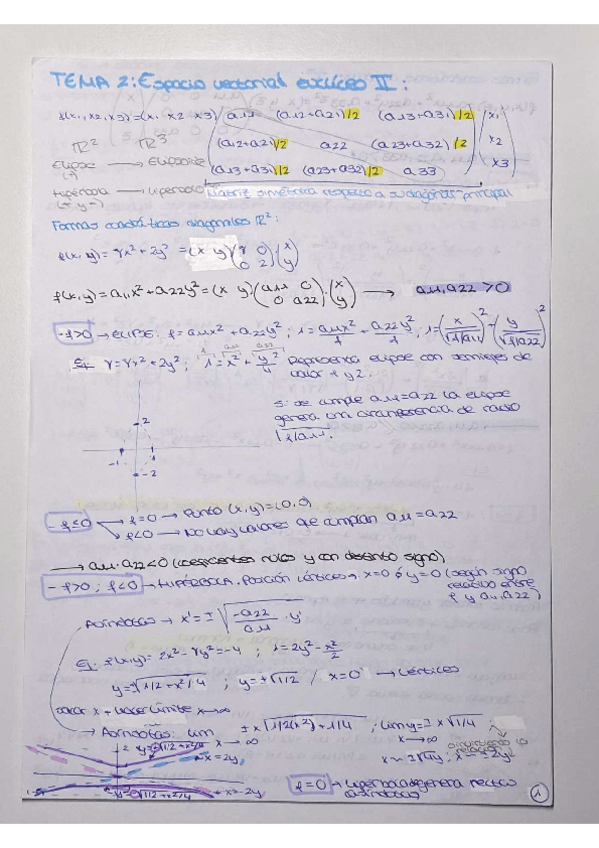 TEMA 2: Espacio vectorial euclídeo II:
f(x1, x2, x3) = (x1 x2 x3) (a11 (a12+a21)/2 (a13+a31)/2) (x1
(a12+a21)/2 a22 (a23+a32)/2 x2
(a13+a31)/2 (a23+a32)/2 a33 x3)
R² R³
Elipse → Elipsoide
Hipérbola → Hiperbol
Matriz simétrica respecto a su diagonal principal
Formas cuadráticas diagonales R²:
f(x, y) = 8x² + 2y² = (x y) (8 0 / 0 2) (x / y)
f(x, y) = a11x² + a22y² = (x y) (a11 0 / 0 a22) (x / y) → a11·a22 > 0
- f>0 → ELIPSE: f = a11x² + a22y²; 1 = a11x²/f + a22y²/f; 1 = (x/√f/a11)² + (y/√f/a22)²
1 = x² + y²/4 Representa elipse con semiejes de
valor 1 y 2.
Si se cumple a11 = a22 la elipse
genera una circunferencia de radio
√f/a11.
2
-1 1
-2
- f≤0 → f=0 → Punto (x, y) = (0, 0)
f<0 → No hay valores que cumplan a11 = a22
→ a11·a22 < 0 (coeficientes no nulos y con distinto signo)
- f>0; f<0 → HIPÉRBOLA. Posición vértices x=0 ó y=0 (según signo
relativo entre
f y a11, a22)
Asíntotas → x' = ± √-a22/a11 · y'
Ej: f(x, y) = 2x² - 8y² = -4; 1 = 2y² - x²/2
y = ±√1/2 + x²/4; y = ±√1/2 / x=0 → vértices
para x + hacer límite x→∞
→ Asíntotas: lim ± x√1/2(x²) + 1/4; lim y = ± x√1/4;
x→∞ x→∞
y = √1/2 + x²/4
x = 2y
y = -√1/2 + x²/4 x = -2y
f=0 → hipérbola degenera en sus
asíntotas
1